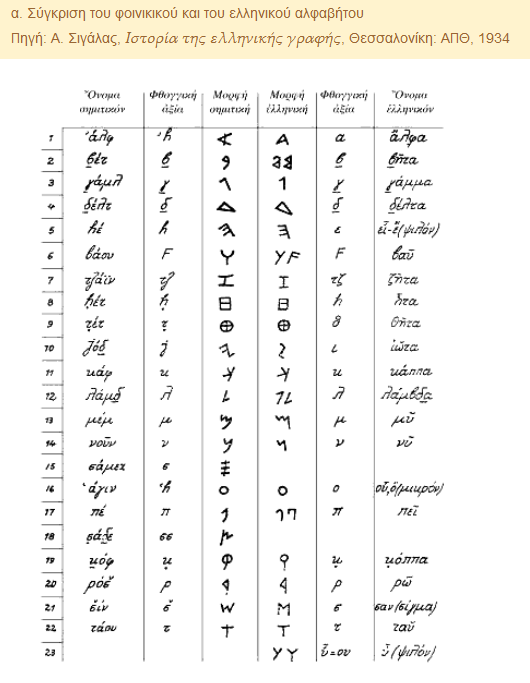 α. Σύγκριση του φοινικικού και του ελληνικού αλφαβήτου
Πηγή: Α. Σιγάλας, Ιστορία της ελληνικής γραφής, Θεσσαλονίκη: ΑΠΘ, 1934
Ὄνομα σημιτικόν Φθογγική ἀξία Μορφή σημιτική Μορφή ἑλληνική Φθογγική ἀξία Ὄνομα ἑλληνικόν
1 ἀλφ α ἄλφα
2 βέτ β β βῆτα
3 γάμλ γ γ γάμμα
4 δέλτ δ δ δέλτα
5 hέ h ε εἶ-ἔ(ψιλόν)
6 βάου F F βαῦ
7 τζάϊν τζ τζ ζῆτα
8 ḥέτ ḥ h ἦτα
9 τέτ τ θ θῆτα
10 jόδ j ι ἰῶτα
11 κάφ κ κ κάππα
12 λάμδ λ λ λάμβδα
13 μέμ μ μ μῦ
14 νοῦν ν ν νῦ
15 σάμεχ σ
16 ἁγιν ο οὖ,ὄ(μικρόν)
17 πέ π π πεῖ
18 σάδε σσ
19 κόφ κ κ κόππα
20 ρόσ ρ ρ ρῶ
21 σίν σ σ σαν(σίγμα)
22 τάου τ τ ταῦ
23 ὖ=ου ὖ(ψιλόν)